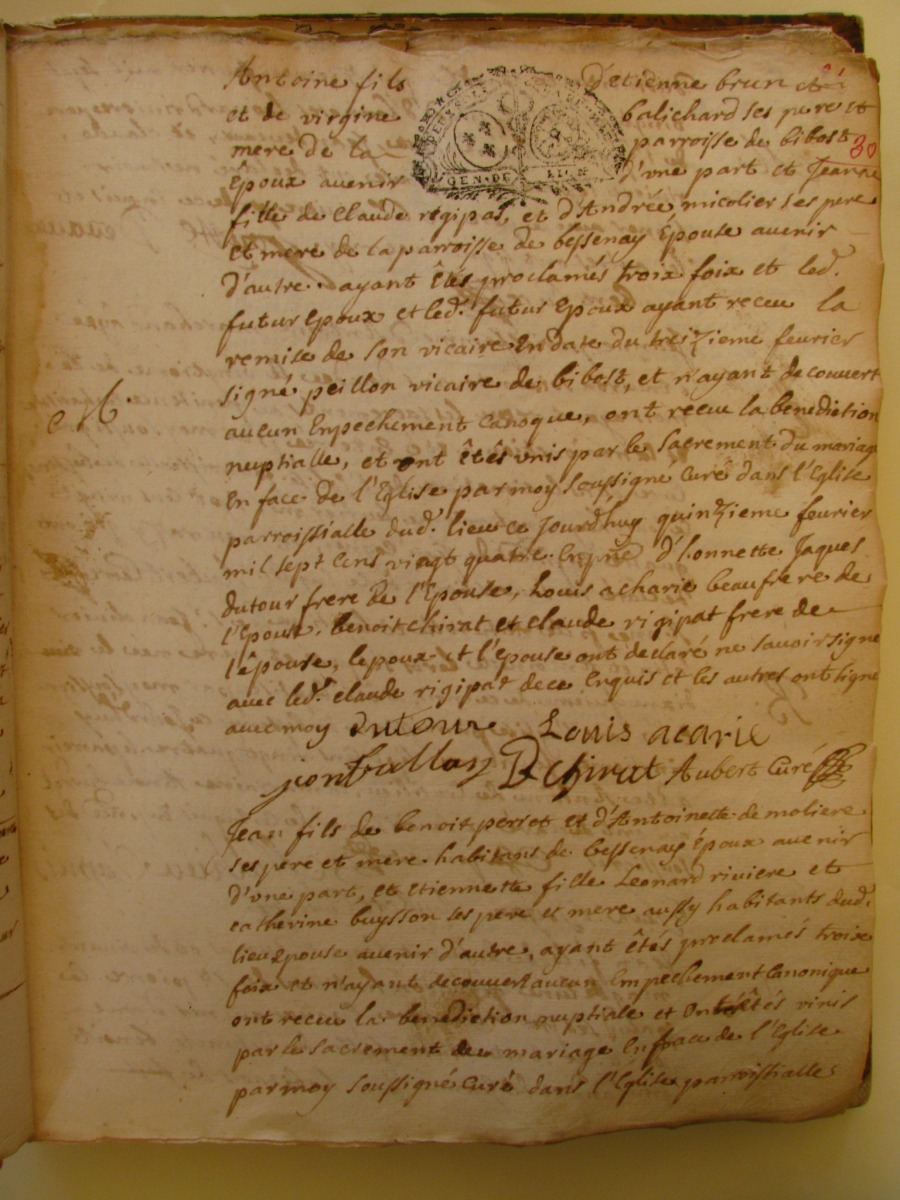 Antoine fils d'etienne brun et
et de virgine balichard ses pere et
mere de la parroisse de bibost
30
Epoux avenir d'vne part et Jeanne
fille de Claude regipas, et d'Andrée micolier ses pere
et mere de la parroisse de bessenay Epouse avenir
d'autre. ayant êtés proclamés troix foix et led.
futur Epoux et led. futur Epoux ayant receu la
remise de son vicaire En date du treizieme feurier
signé peillon vicaire de bibost, et n'ayant decouvert
M.
aucun Enpechement Canoque, ont receu la benediction
nuptialle, et ont êtês vnis par le Sacrement du mariage
En face de l'Eglise par moy soussigné Curé dans l'Eglise
parroissialle dud. lieu ce jourdhuy quinzieme feurier
mil sept cens vingt quatre En pnce d'honnette Jaques
dutour frere de l'Epouse, Louis acharie beaufrere de
l'Epouse, Benoit chirat et claude rigipat frere de
l'êpouse, lepoux et l'épouse ont declaré ne savoir signe
avec led. claude rigipat de ce Enquis et les autres ont signe
avec moy Dutour Louis acarie
B chirat Aubert Curé
Jean fils de benoit perret et d'Antoinette de moliere
ses pere et mere habitans de bessenay Époux avenir
d'vne part, et etiennette fille Leonard riviere et
catherine buysson ses pere et mere aussy habitants dud.
lieu Epouse avenir d'autre, ayant êtés proclamés troix
foix et n'ayant decouvert aucun Empechement Canonique
ont receu la benediction nuptiale et ont êtés vinis
par le sacrement de mariage En face de l'Eglise
par moy soussigné Curé dans l'Eglise parroissialle